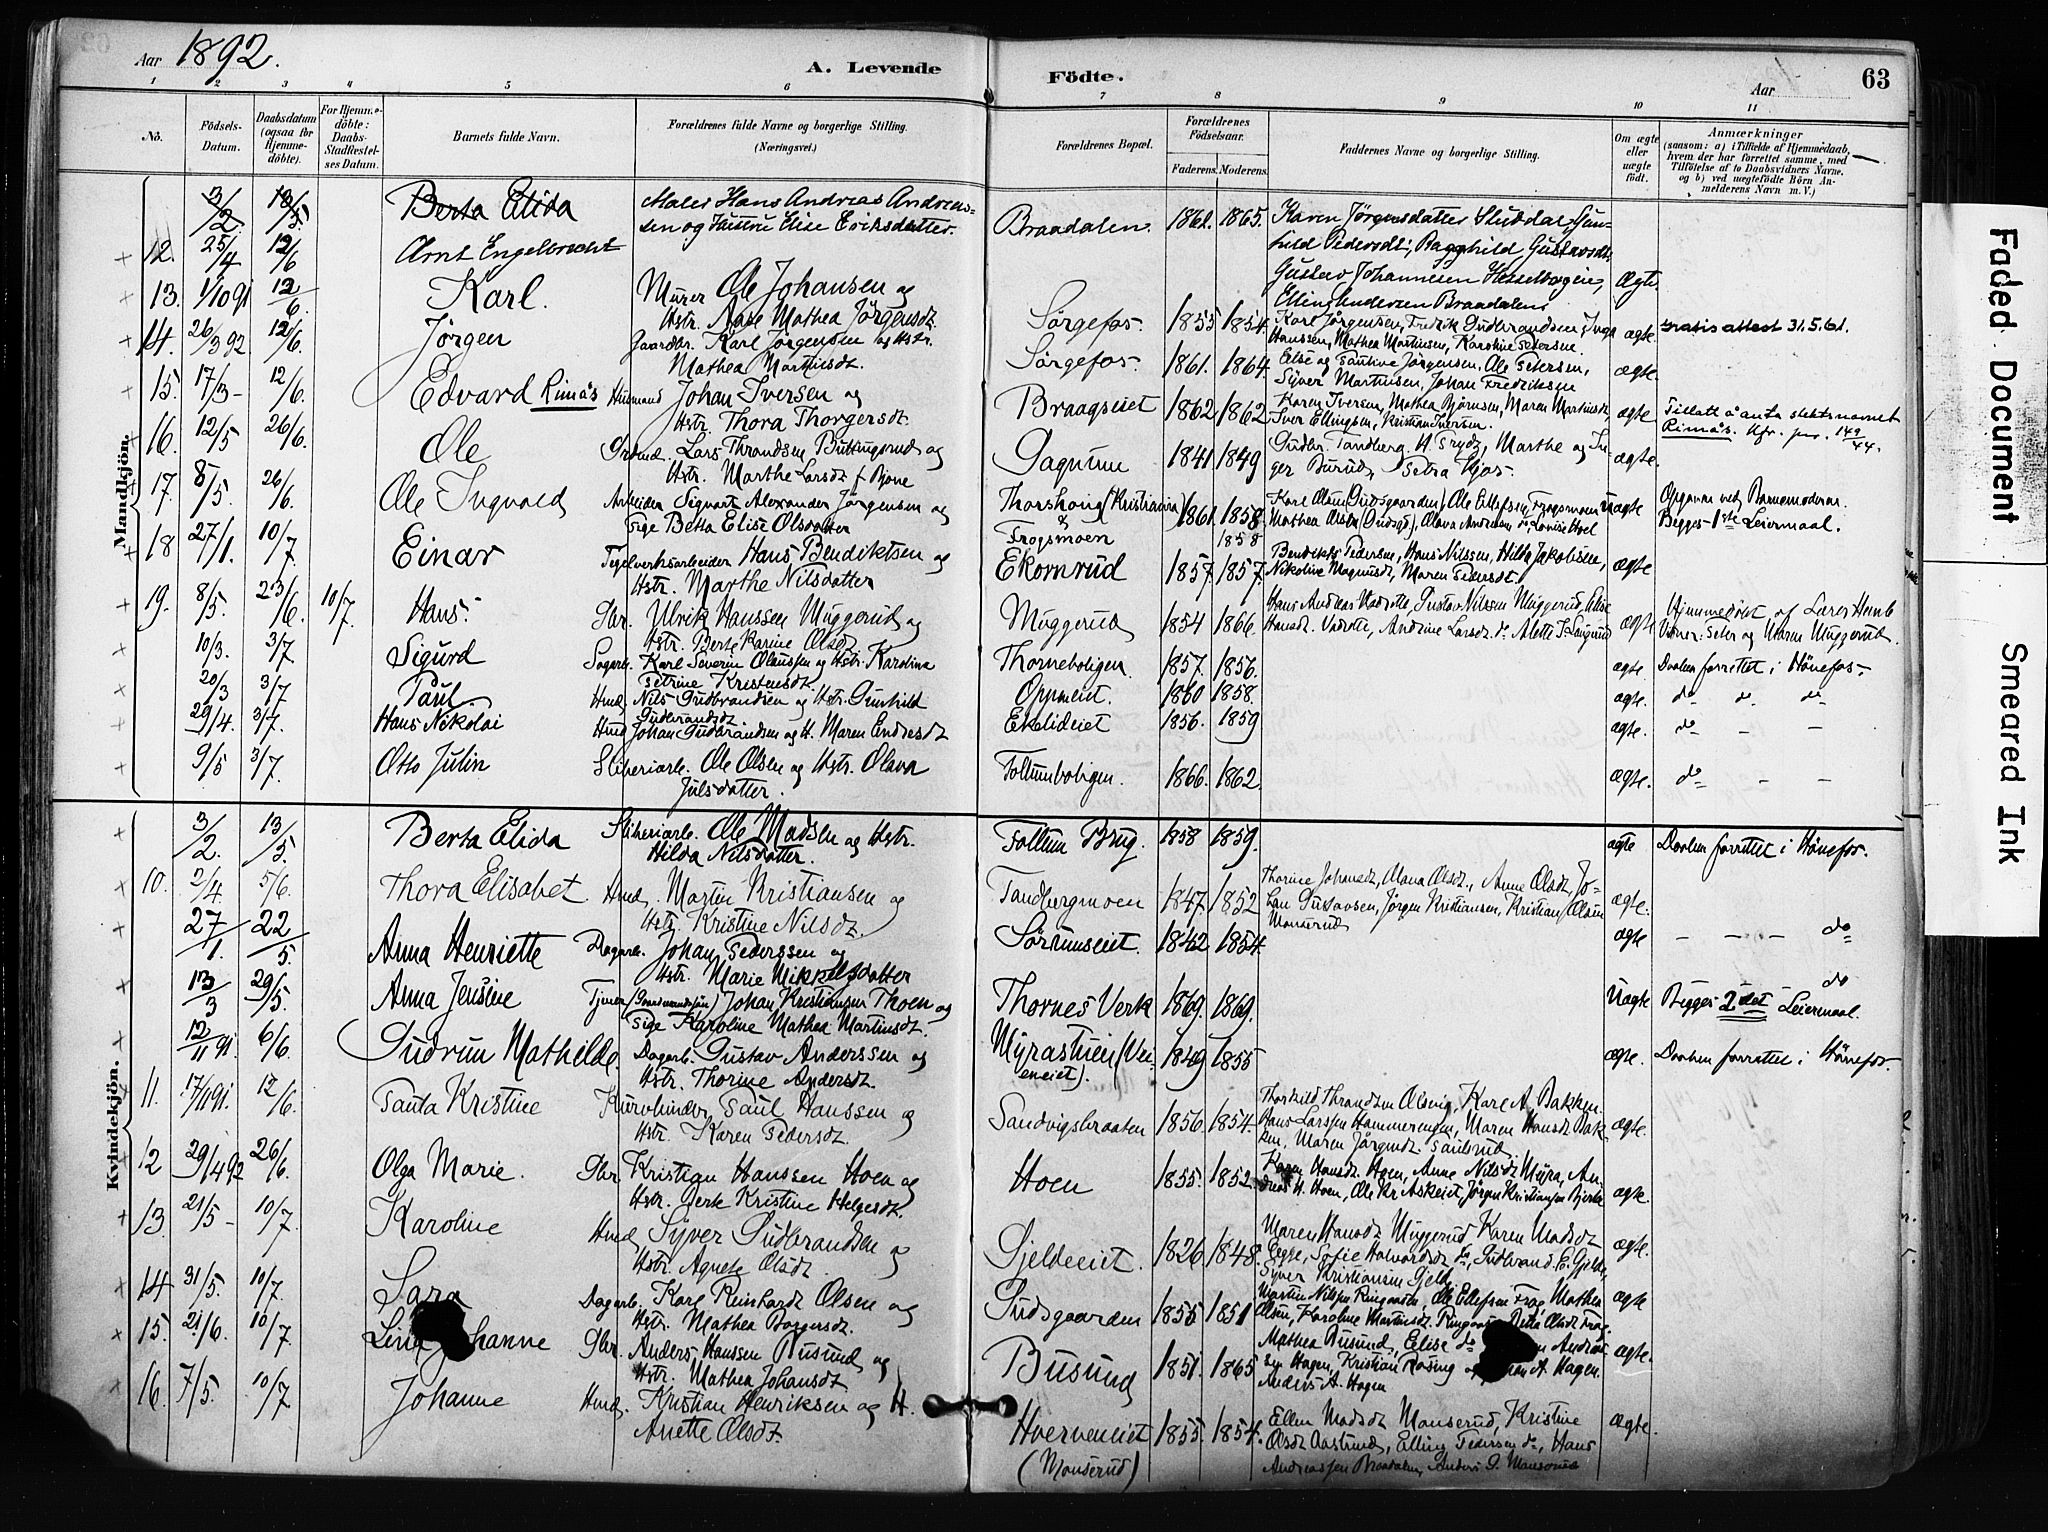 Aar 1892.
A. Levende Födte.
Aar
63
1 2 3 4 5 6 7 8 9 10 11
No. Födsels-Datum. Daabsdatum (ogsaa for Hjemmedöbte). For Hjemmedöbte: Daabs-Stadfæstelses Datum. Barnets fulde Navn. Forældrenes fulde Navne og borgerlige Stilling. (Næringsvei.) Forældrenes Bopæl. Forældrenes Födselsaar. Faderens. Moderens. Faddernes Navne og borgerlige Stilling. Om ægte eller uægte födt. Anmærkninger (saasom: a) i Tilfælde af Hjemmedaab, hvem der har forrettet samme, med Tilföielse af to Daabsvidners Navne, og b) ved uægtefödte Börn Anmelderens Navn m. V.)
Mandkjön.
3/2 13/5 Berta Elida
12. 25/4 12/6 Arnt Engelbrecht Maler Hans Andreas Andreassen og Hustru Elise Eriksdatter. Braadalen. 1861. 1865. Karen Jørgensdatter Gunhild Pedersdt., Ragnhild Gustavsdt. Gustav Johannesen Hesselbergeie, Elling Andersen Braadalen. Ægte.
13. 1/10 91 12/6 Karl. Murer Ole Johansen og Hstr. Mathea Jörgensdt. Sørgefos. 1855 1854. Karl Jørgensen, Fredrik Gudbrandsen, Inga Hanssen, Mathea Martinsen, Karoline Petersen. ægte. Gratis attest 31.5.61.
14. 26/3 92 12/6. Jørgen Gaardbr. Karl Jørgensen og Hstr. Mathea Martinsdt. Sørgefos. 1861. 1864. Else og Pauline Jørgensen, Ole Petersen, Syver Martinsen, Johan Fredriksen ægte.
15. 17/3 - 12/6. Edvard Rimås Husmand Johan Iversen og Hstr. Thora Thorgersdt. Braagseiet 1862 1862 Karen Iversen, Mathea Bjørnsen, Maren Martinsdt Iver Ellingsen, Kristian Iversen. ægte Tillatt å anta slektsnavnet Rimås. Kfr. jnr. 149/44.
16. 12/5 26/6. Ole Lars Thrandsen og Hstr. Marthe Larsdt Dagrum 1841 1849 Gudbr. Tandberg, Marthe og Inger Burud, Petra Kjos. ægte.
17. 8/5. 26/6. Ole Ingvald Arbeider Sigvart Alexander Jørgensen og Pige Berta Elise Olsdatter Thorshaug (Kristiania) & Frogsmoen 1861. 1858. 1858 Karl Olsen (Gudsgaarden), Ole Ellefsen Frogsmoen Mathea Olsen (Gudsgd), Olava Andersen do, Lovise Uægte Opgaven ved Barnemoderen. Begges 1ste Leiermaal.
18 27/1. 10/7. Einar Teglverksarbeider Hans Bendiktsen og Hstr. Marthe Nilsdatter Ekornrud 1857. 1857. Bendikt Pedersen, Hans Nilssen, Hilda Jakobsen, Nikoline Magnusdt, Maren Pedersdt. ægte
19. 8/5. 23/6. 10/7. Hans. Gbr. Ulrik Hanssen Muggerud og Hstr. Berte Karine Olsdt. Muggerud 1854 1866. Hans Andreas, Gustav Nilssen Muggerud, Elise Hansdt., Andrine Larsdt. do. ægte Hjemmedøbt af Lars Vidner: Peter og Maren Muggerud.
10/3. 3/7 Sigurd Sagarb. Karl Severin Olaussen og Hstr. Karolina Petrine Kristensdt. Thorneboligen. 1857. 1856. ægte Daaben forrettet i Hönefos.
20/3 3/7 Paul. Hmd. Nils Gudbrandsen og Hstr. Gunhild Gudbrandsdt. Oppneiet. 1860 1858. ægte. do do do
29/4. 3/7. Hans Nikolai Hmd Johan Gudbrandsen og H. Maren Endresdt Ekelideiet 1856. 1859 ægte. do - -
9/5 3/7. Otto Julin Sliberiarb. Ole Olsen og Hstr. Olava Julsdatter. Follumboligen. 1866. 1862. ægte do - -
Kvindekjön.
3/2. 13/5. Berta Elida Sliberiarb. Ole Madsen og Hstr. Hilda Nilsdatter. Follum Brug. 1858 1859. ægte Daaben forrettet i Hönefos.
10. 2/4 5/6. Thora Elisabet Hmd. Martin Kristiansen og Hstr. Kristine Nilsdt. Tandbergmoen 1847. 1852 Thorine Johansdt, Maria Olsdt., Anne Olsdt, Johan Gustavsen, Jørgen Kristiansen, Kristian Olsen Monserud. ægte.
27/1. 22/5 Anna Henriette Dagarb. Johan Pederssen og Hstr. Marie Mikkelsdatter Sørumseiet. 1842 1854. ægte - - - do
13/3 29/5. Anna Jensine Tjener (Gaardmandssøn) Johan Kristiansen Thoen og Pige Karoline Mathea Martinsdt. Thornes Verk 1869. 1869. Uægte Begges 2det Leiermaal. do
12/11 91. 6/6. Gudrun Mathilde. Dagarb. Gustav Anderssen og Hstr. Thorine Andersdt. Myrastuen (Veieneiet). 1849 1855 ægte. Daaben forrettet i Hönefos.
11. 17/11 91. 12/6. Paula Kristine Kurvbinder Paul Hanssen og Hstr. Karen Pedersdt. Sandvigsbraaten 1856. 1854. Thorkild Thrandsen Olsvig, Karl A. Bakken. Hans Larssen Hammerengen, Maren Hansdt Bakken, Maren Jørgensdt. Paulsrud. ægte.
12 29/4 92 26/6. Olga Marie. Gbr. Kristian Hanssen Hoen og Hstr. Berte Kristine Helgesdt. Hoen 1855. 1852. Karen Hansdt. Hoen, Anne Nilsdt Myra, Andreas H. Hoen, Ole Kr. Askeiet, Jørgen Kristiansen Bjerke ægte.
13. 21/5 - 10/7. Karoline Hmd. Syver Gudbrandsen og Hstr. Agnete Olsdt. Gjeldeeiet. 1826 1848. Maren Hansdt Muggerud, Karen Madsdt Egge, Sofie Halvorsdt do, Gudbrand E. Gjelde, Syver Kristiansen Gjeld. ægte.
14 31/5. 10/7. Sara Dagarb. Karl Reinhardt Olsen og Hstr. Mathea Borgersdt. Gudsgaarden 1855 1851 Martin Nilssen Ringaasen, Ole Ellefsen Frog, Mathea Olsen, Karoline Martinsdt. Ringaasen, Berta Olsdt Frog. ægte
15. 21/6. 10/7. Lina hanne Gbr. Anders Hanssen Busund og Hstr. Mathea Johansdt. Busund 1851. 1865 Mathea Busund, Elise do Hagen, Kristian Rösing A. Hagen. Anders A. Hagen ægte.
16. 7/5. 10/7. Johanne Hmd. Kristian Henriksen og H. Anette Olsdt. Hverveneiet (Monserud) 1855. 1854. Ellen Madsdt Monserud, Kristine Olsdt, Elling Pedersen do, Hans Andreassen Braadalen, Anders Monserud ægte.
Faded Document
Smeared Ink